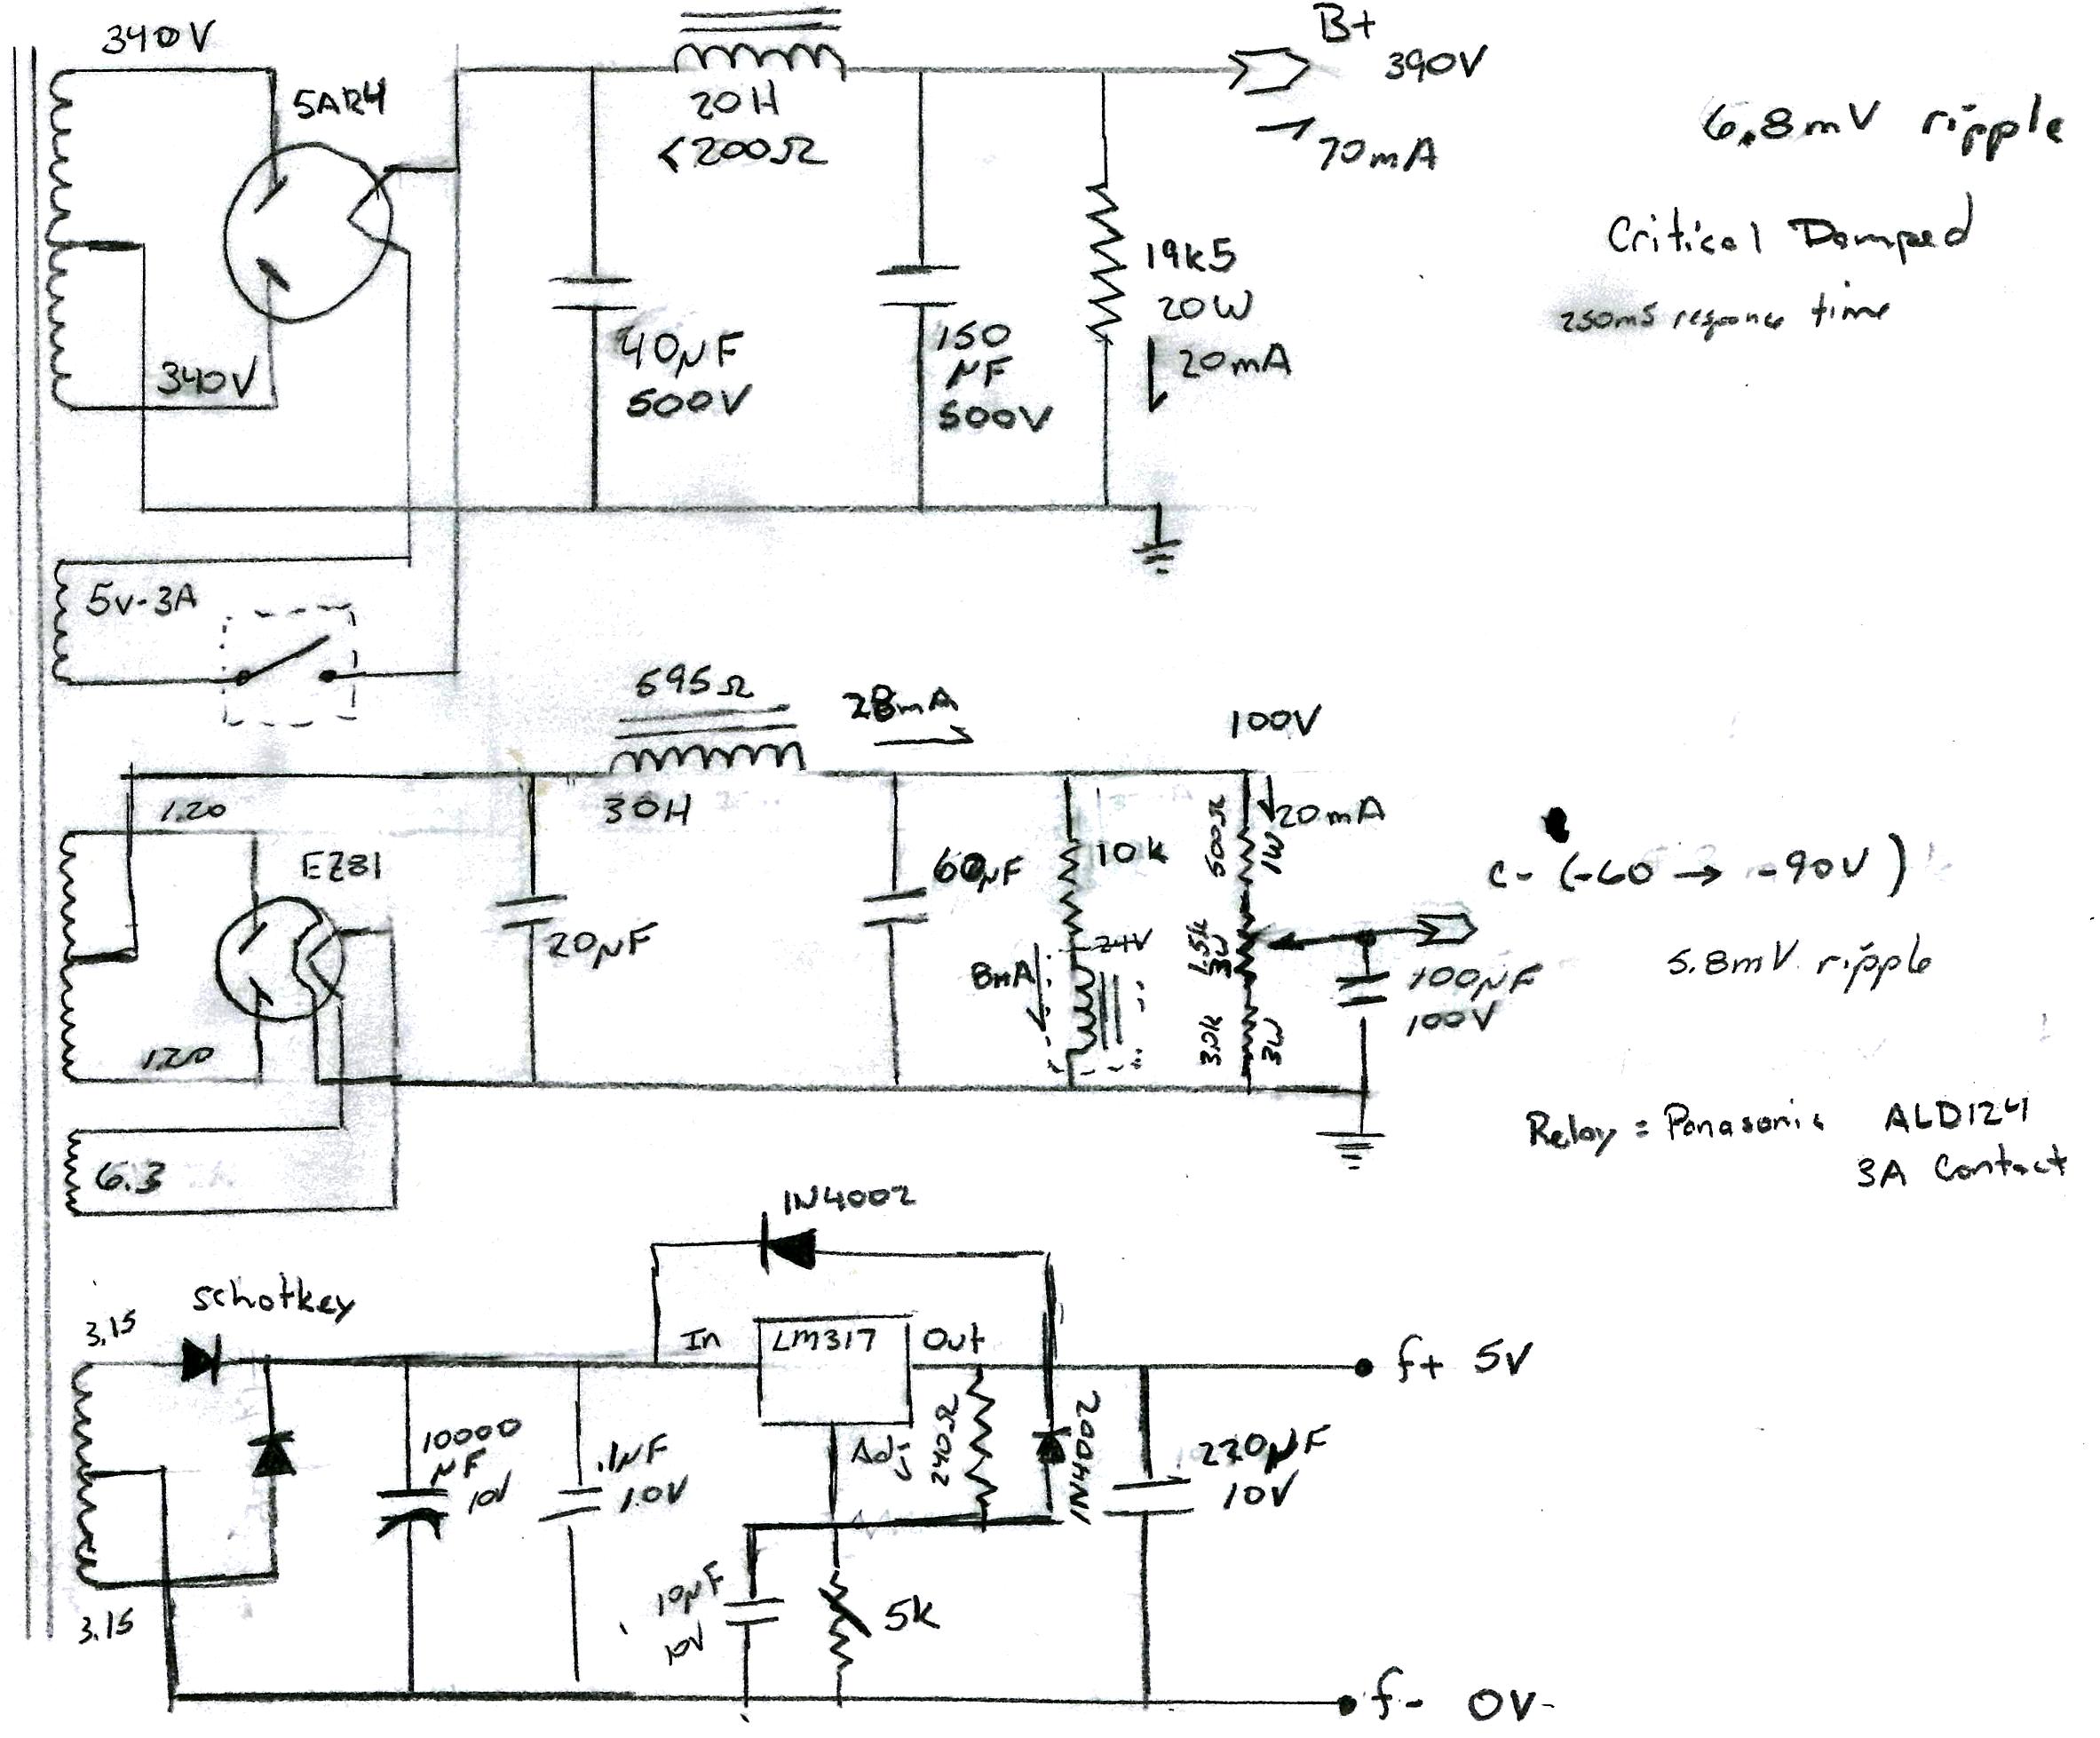 340V
5AR4
340V
20H
<200Ω
B+
390V
70mA
6.8mV ripple
Critical Damped
250ms response time
40µF
500V
150
µF
500V
19k5
20W
20mA
5v-3A
595Ω
30H
28mA
100V
120
EZ81
120
6.3
20µF
60µF
10k
24V
8mA
500Ω
1W
20mA
1.5k
3W
3.0k
3W
100µF
100V
C- (-60 → -90V)
5.8mV ripple
Relay = Panasonic ALD124
3A Contact
1N4002
schotkey
3.15
3.15
In
LM317
Out
Adj
10000
µF
10V
.1µF
10V
240Ω
1N4002
220µF
10V
10µF
10V
5k
f+ 5V
f- 0V-